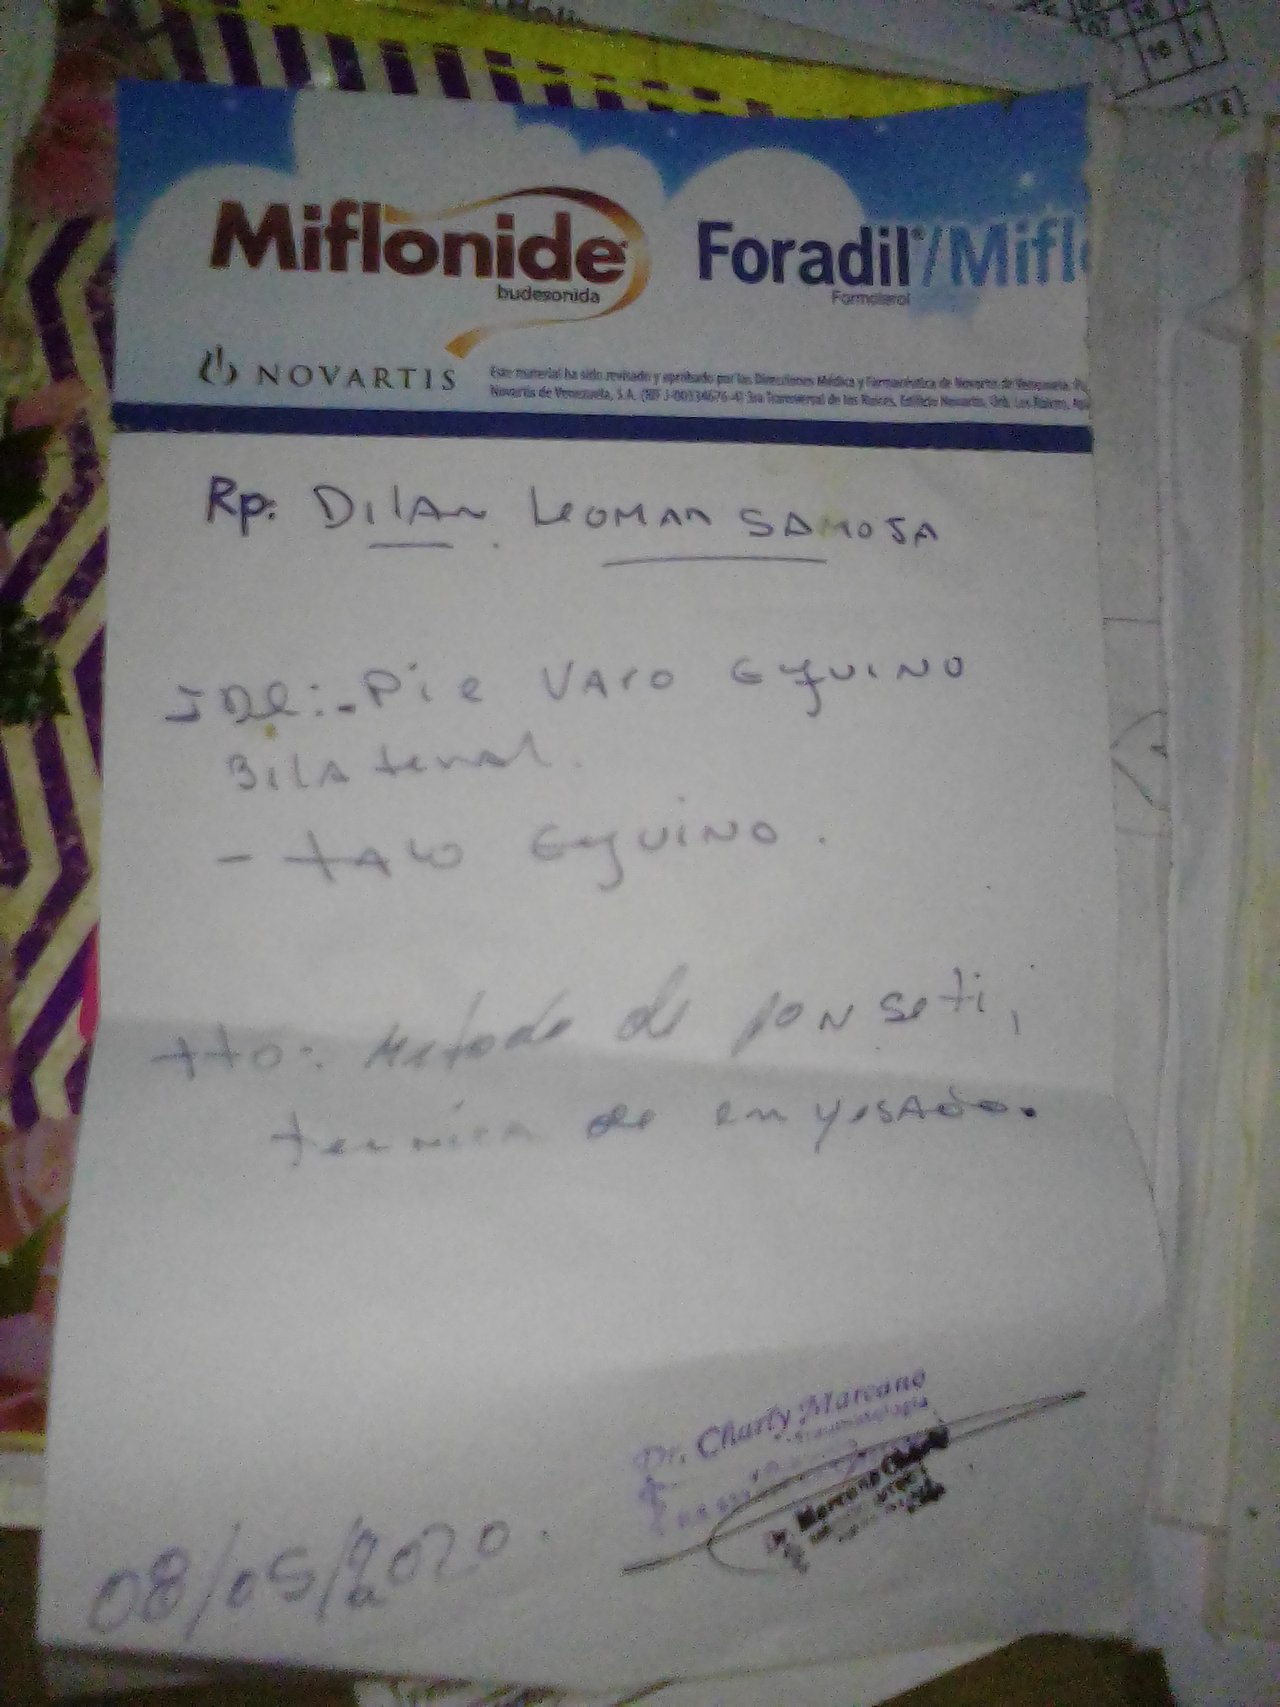 Miflonide
budesonida
Foradil®/Mifl
Formoterol
NOVARTIS
Este material ha sido revisado y aprobado por las Direcciones Médica y Farmacéutica de Novartis de Venezuela.
Novartis de Venezuela, S.A. (RIF J-00334676-4) 3ra Transversal de los Ruices, Edificio Novartis, Urb. Los Ruices,
Rp: DILAN LEOMAR SAMOSA
IDX:- Pie VAro Equino
BilAteral.
- tAlo EquiNO.
tto: Metodo de ponseti,
tecnica de enyesado.
Dr. Charly Marcano
Traumatología
Marcano
08/05/2020.
16
1